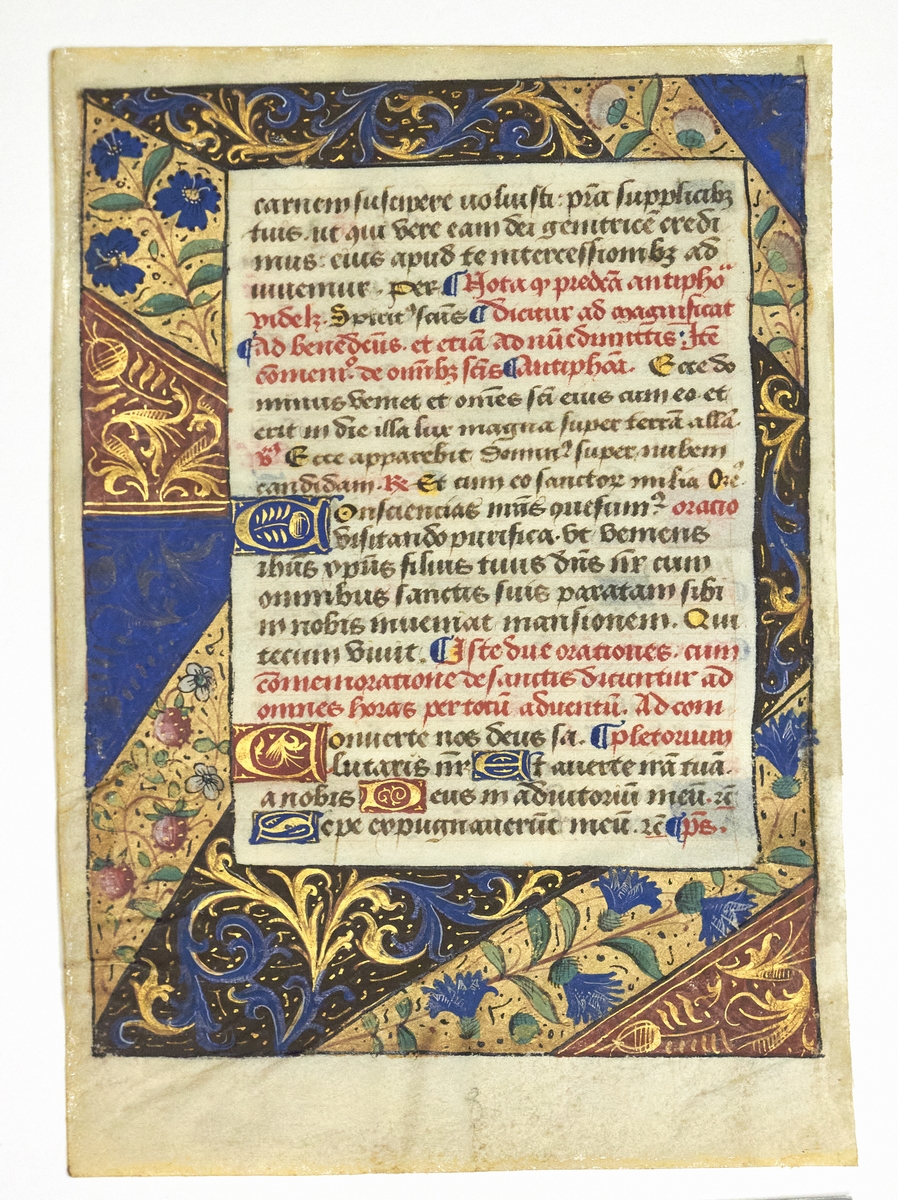 carnem suscipere voluisti: pr̄a supplicibꝫ
tuis. ut qui vere eam dei genitricē credi
mus: eius apud te intercessionibꝫ ad
iuuemur. Per. ¶ Nota ꝙ predcā antipho
videlꝫ. Spiritꝰ scūs ¶ dicitur ad magnificat
¶ ad benedcūs. et etiā ad nūc dimittis: Itē
cōmemꝰ. de omībꝫ scīs ¶ Antiphōa. Ecce do
minus veniet et omēs scī eius cum eo. et
erit in die illa lux magna super terrā allā.
v̄ Ecce apparebit Dominꝰ super nubem
candidam. R̄ Et cum eo sanctorꝫ milia Orē.
Consciencias nr̄as quesumꝰ oratio
visitando purifica. Vt veniens
ihūs xp̄us filius tuus dūs nr̄ cum
omnibus sanctis suis paratam sibi
in nobis inueniat mansionem. Qui
tecum viuit. ¶ Iste due orationes. cum
cōmemoratione de sanctis dicuntur ad
omnes horas per totū aduentū. Ad com
Conuerte nos deus sa. ¶ pletorium
lutaris nr̄ Et auerte irā tuā.
a nobis Deus in adiutoriū meū. rē
Sepe expugnauerūt meū. rē ¶ ps̄.